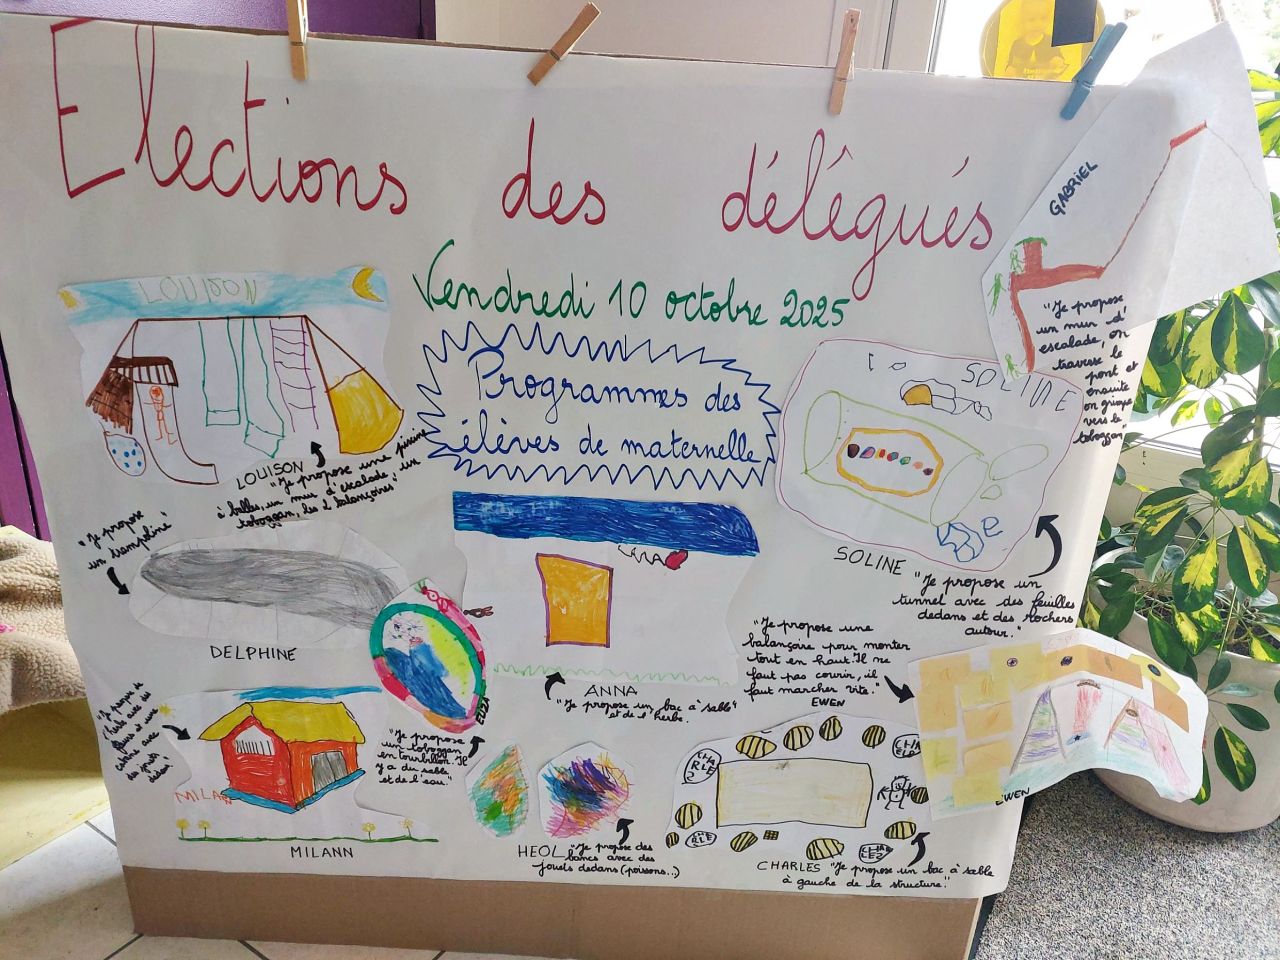 Elections des délégués
Vendredi 10 octobre 2025
Programmes des
élèves de maternelle
LOUISON
LOUISON
"Je propose une piscine
à balles, un mur d'escalade, un
toboggan, les 2 balançoires"
GABRIEL
"Je propose
un mur d'
escalade, on
traverse le
pont et
ensuite
on grimpe
vers le
toboggan"
SOLINE
SOLINE
"Je propose un
tunnel avec des feuilles
dedans et des rochers
autour."
"Je propose
un trampoline"
DELPHINE
ANNA
"Je propose un bac à sable"
et de l'herbe.
"Je propose une
balançoire pour monter
tout en haut. Il ne
faut pas courir, il
faut marcher vite."
EWEN
EWEN
"Je propose de
l'herbe avec des
fleurs et une
cabane avec
MILAN
MILANN
ELIZA
"Je propose
un toboggan
en tourbillon. Il
y a du sable
et de l'eau."
HEOL
"Je propose des
bancs avec des
jouets dedans (poissons..)
CHARLES
"Je propose un bac à sable
à gauche de la structure."